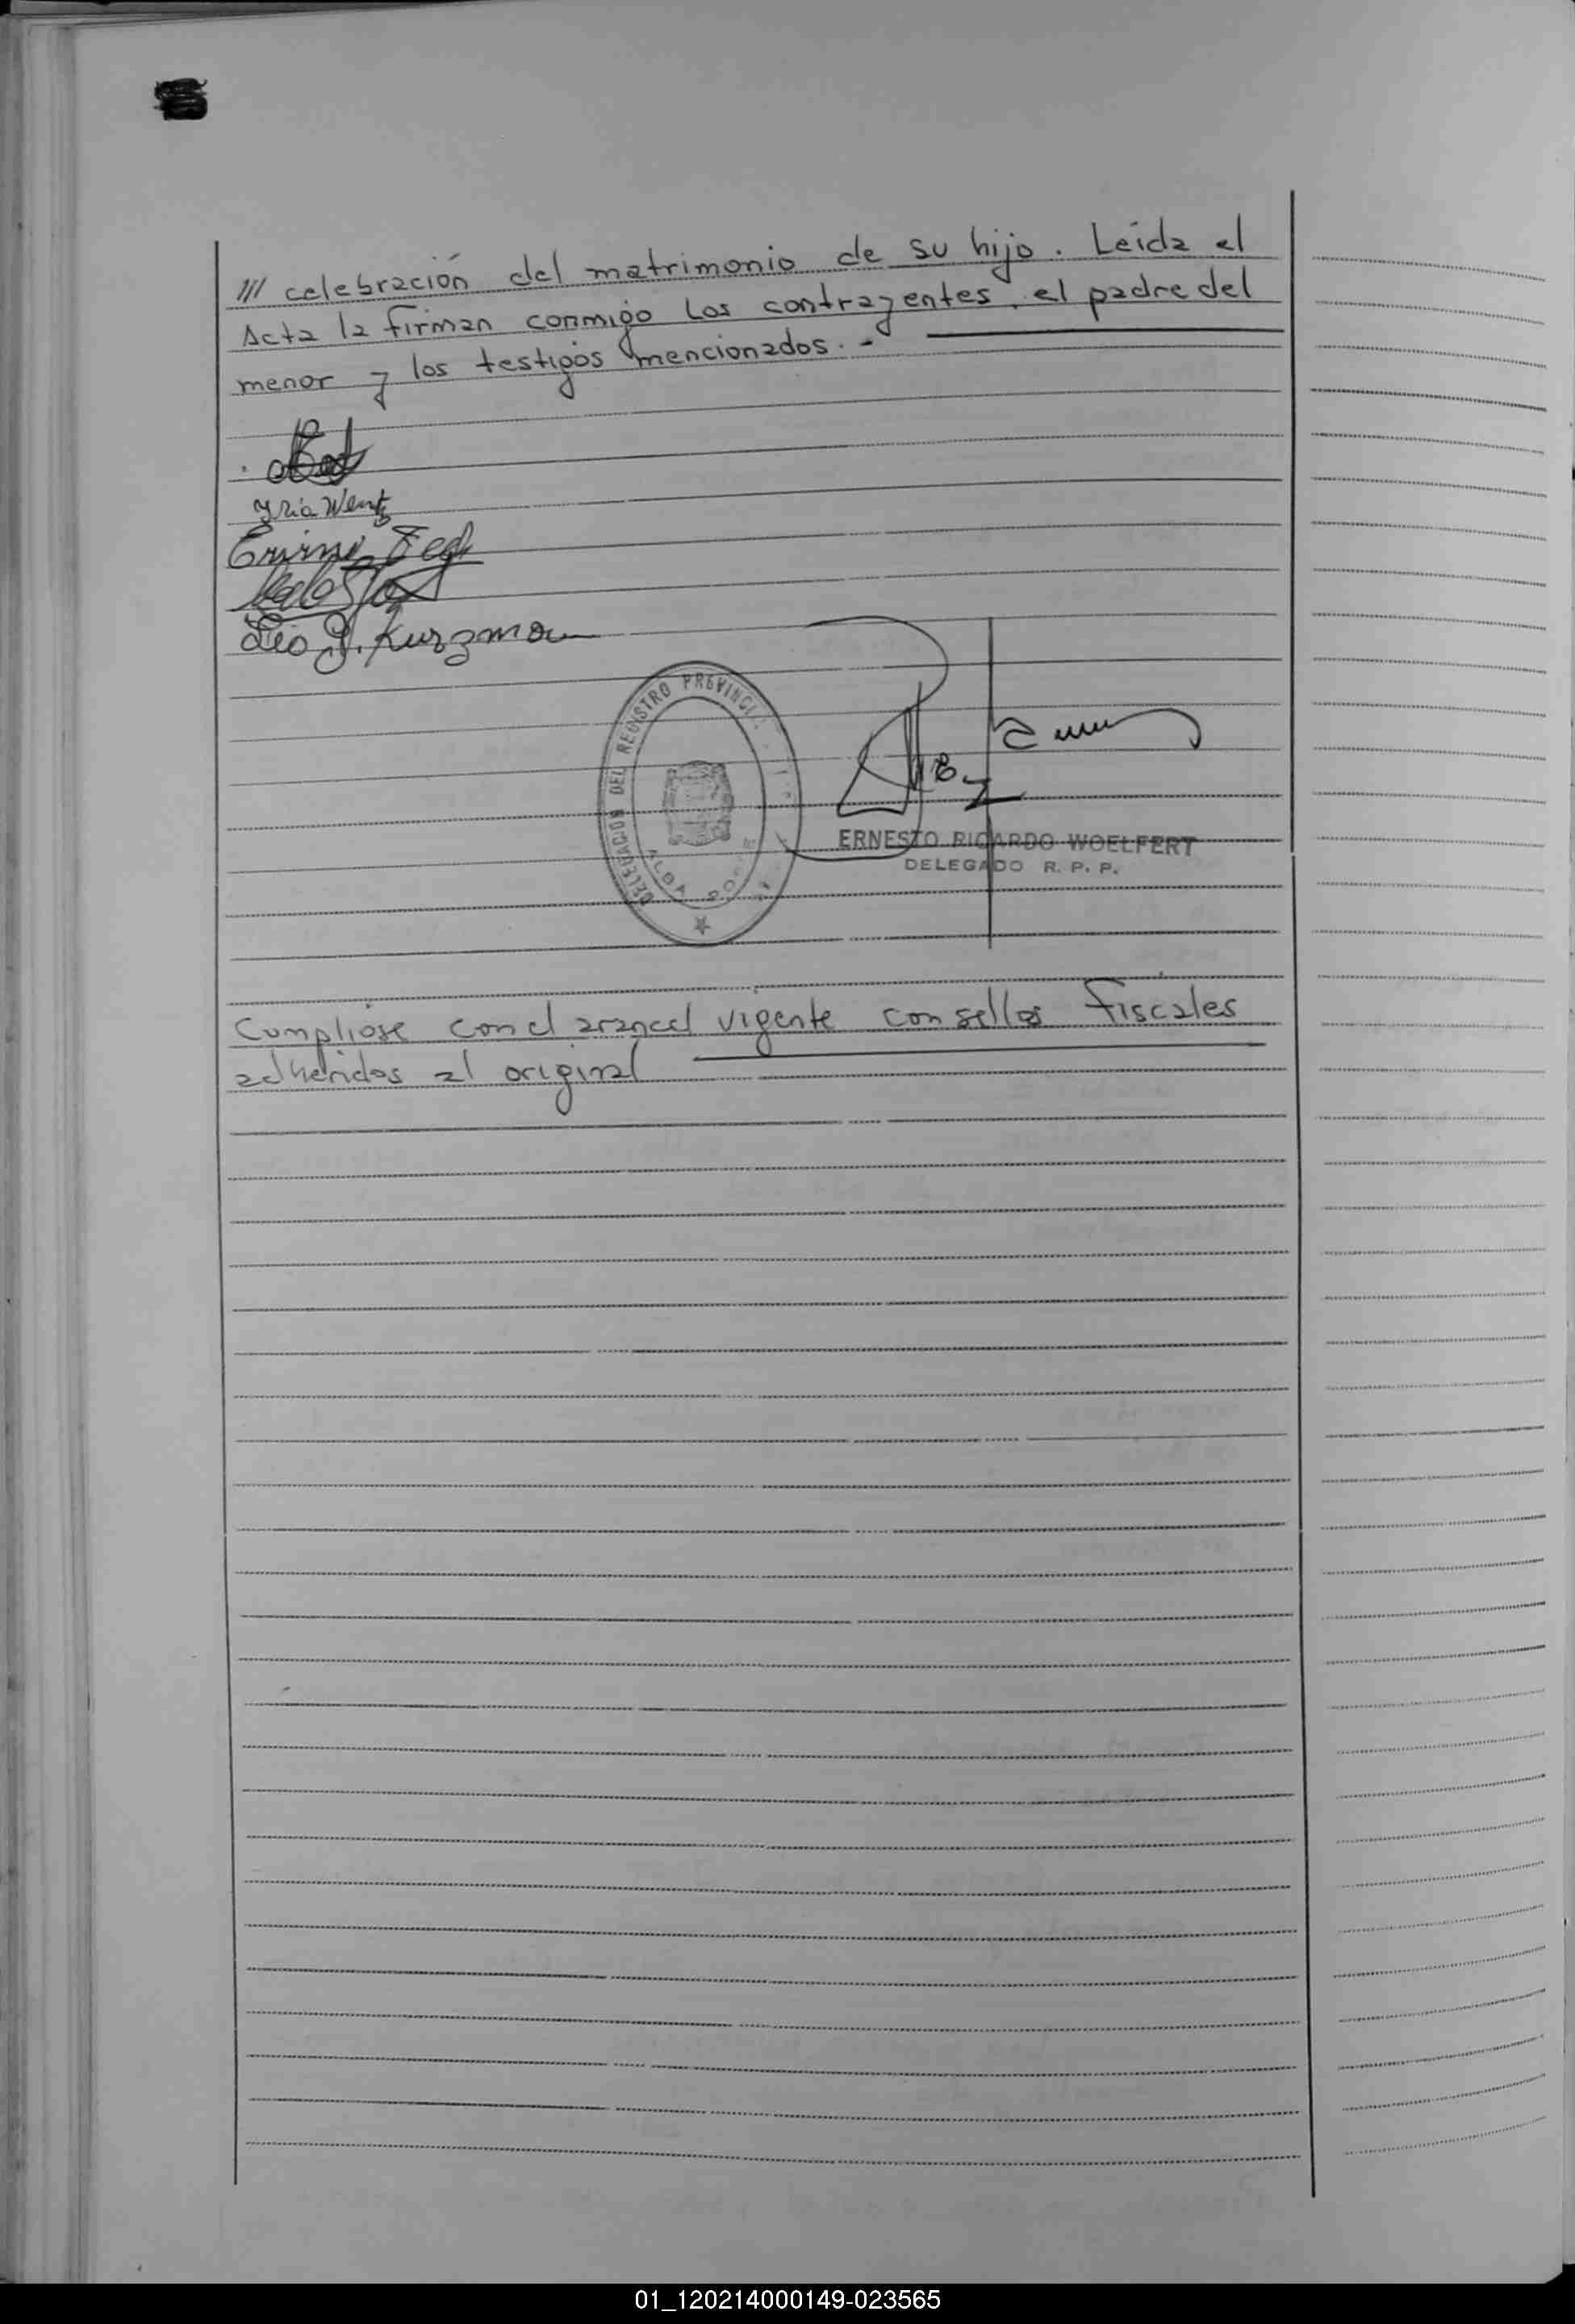 /// celebración del matrimonio de su hijo. Leída el
Acta la firman conmigo los contrayentes, el padre del
menor y los testigos mencionados. -
Yria Wentz
Erwino
Leo J. Kurzman
DELEGACION DEL REGISTRO PROVINCIAL
ALBA POSSE
ERNESTO RICARDO WOELFERT
DELEGADO R. P. P.
Cumplióse con el arancel vigente con sellos fiscales
adheridos al original
01_120214000149-023565